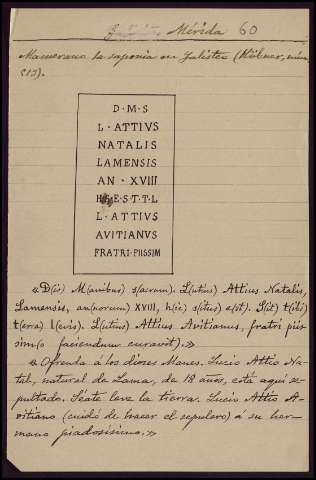 Mérida 60
Mamerano la suponia en Julistes (Hübner, núm
513).
D · M · S
L · ATTIVS
NATALIS
LAMENSIS
AN · XVIII
H · E · S · T · T · L
L · ATTIVS
AVITIANVS
FRATRI · PIISSIM
«D(is) M(anibus) s(acrum). L(utius) Attius Natalis,
Lamensis, an(norum) XVIII, h(ic) s(itus) e(st). S(it) t(ibi)
t(erra) l(evis). L(utius) Attius Avitianus, fratri piis
sim(o faciendum curavit).»
«Ofrenda á los dioses Manes. Lucio Attio Na-
tal, natural de Lama, de 18 años, está aquí se-
pultado. Séate leve la tierra. Lucio Attio A-
vitiano (cuidó de hacer el sepulcro) á su her-
mano piadosísimo.»